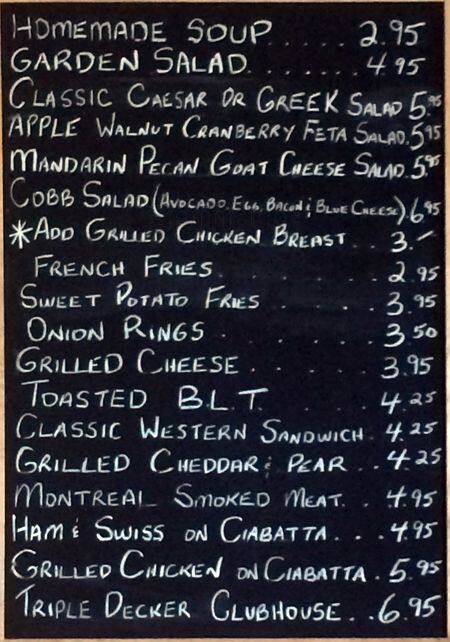 HOMEMADE SOUP..... 2.95
GARDEN SALAD....... 4.95
CLASSIC CAESAR OR GREEK SALAD 5.95
APPLE WALNUT CRANBERRY FETA SALAD.5.95
MANDARIN PECAN GOAT CHEESE SALAD.5.95
COBB SALAD (AVOCADO, EGG, BACON & BLUE CHEESE) 6.95
*ADD GRILLED CHICKEN BREAST.. 3.-
FRENCH FRIES....... 2.95
SWEET POTATO FRIES .... 3.95
ONION RINGS...... 3.50
GRILLED CHEESE..... 3.95
TOASTED B.L.T. ... 4.25
CLASSIC WESTERN SANDWICH. 4.25
GRILLED CHEDDAR & PEAR .. 4.25
MONTREAL SMOKED MEAT.. 4.95
HAM & SWISS ON CIABATTA... 4.95
GRILLED CHICKEN ON CIABATTA . 5.95
TRIPLE DECKER CLUBHOUSE.. 6.95